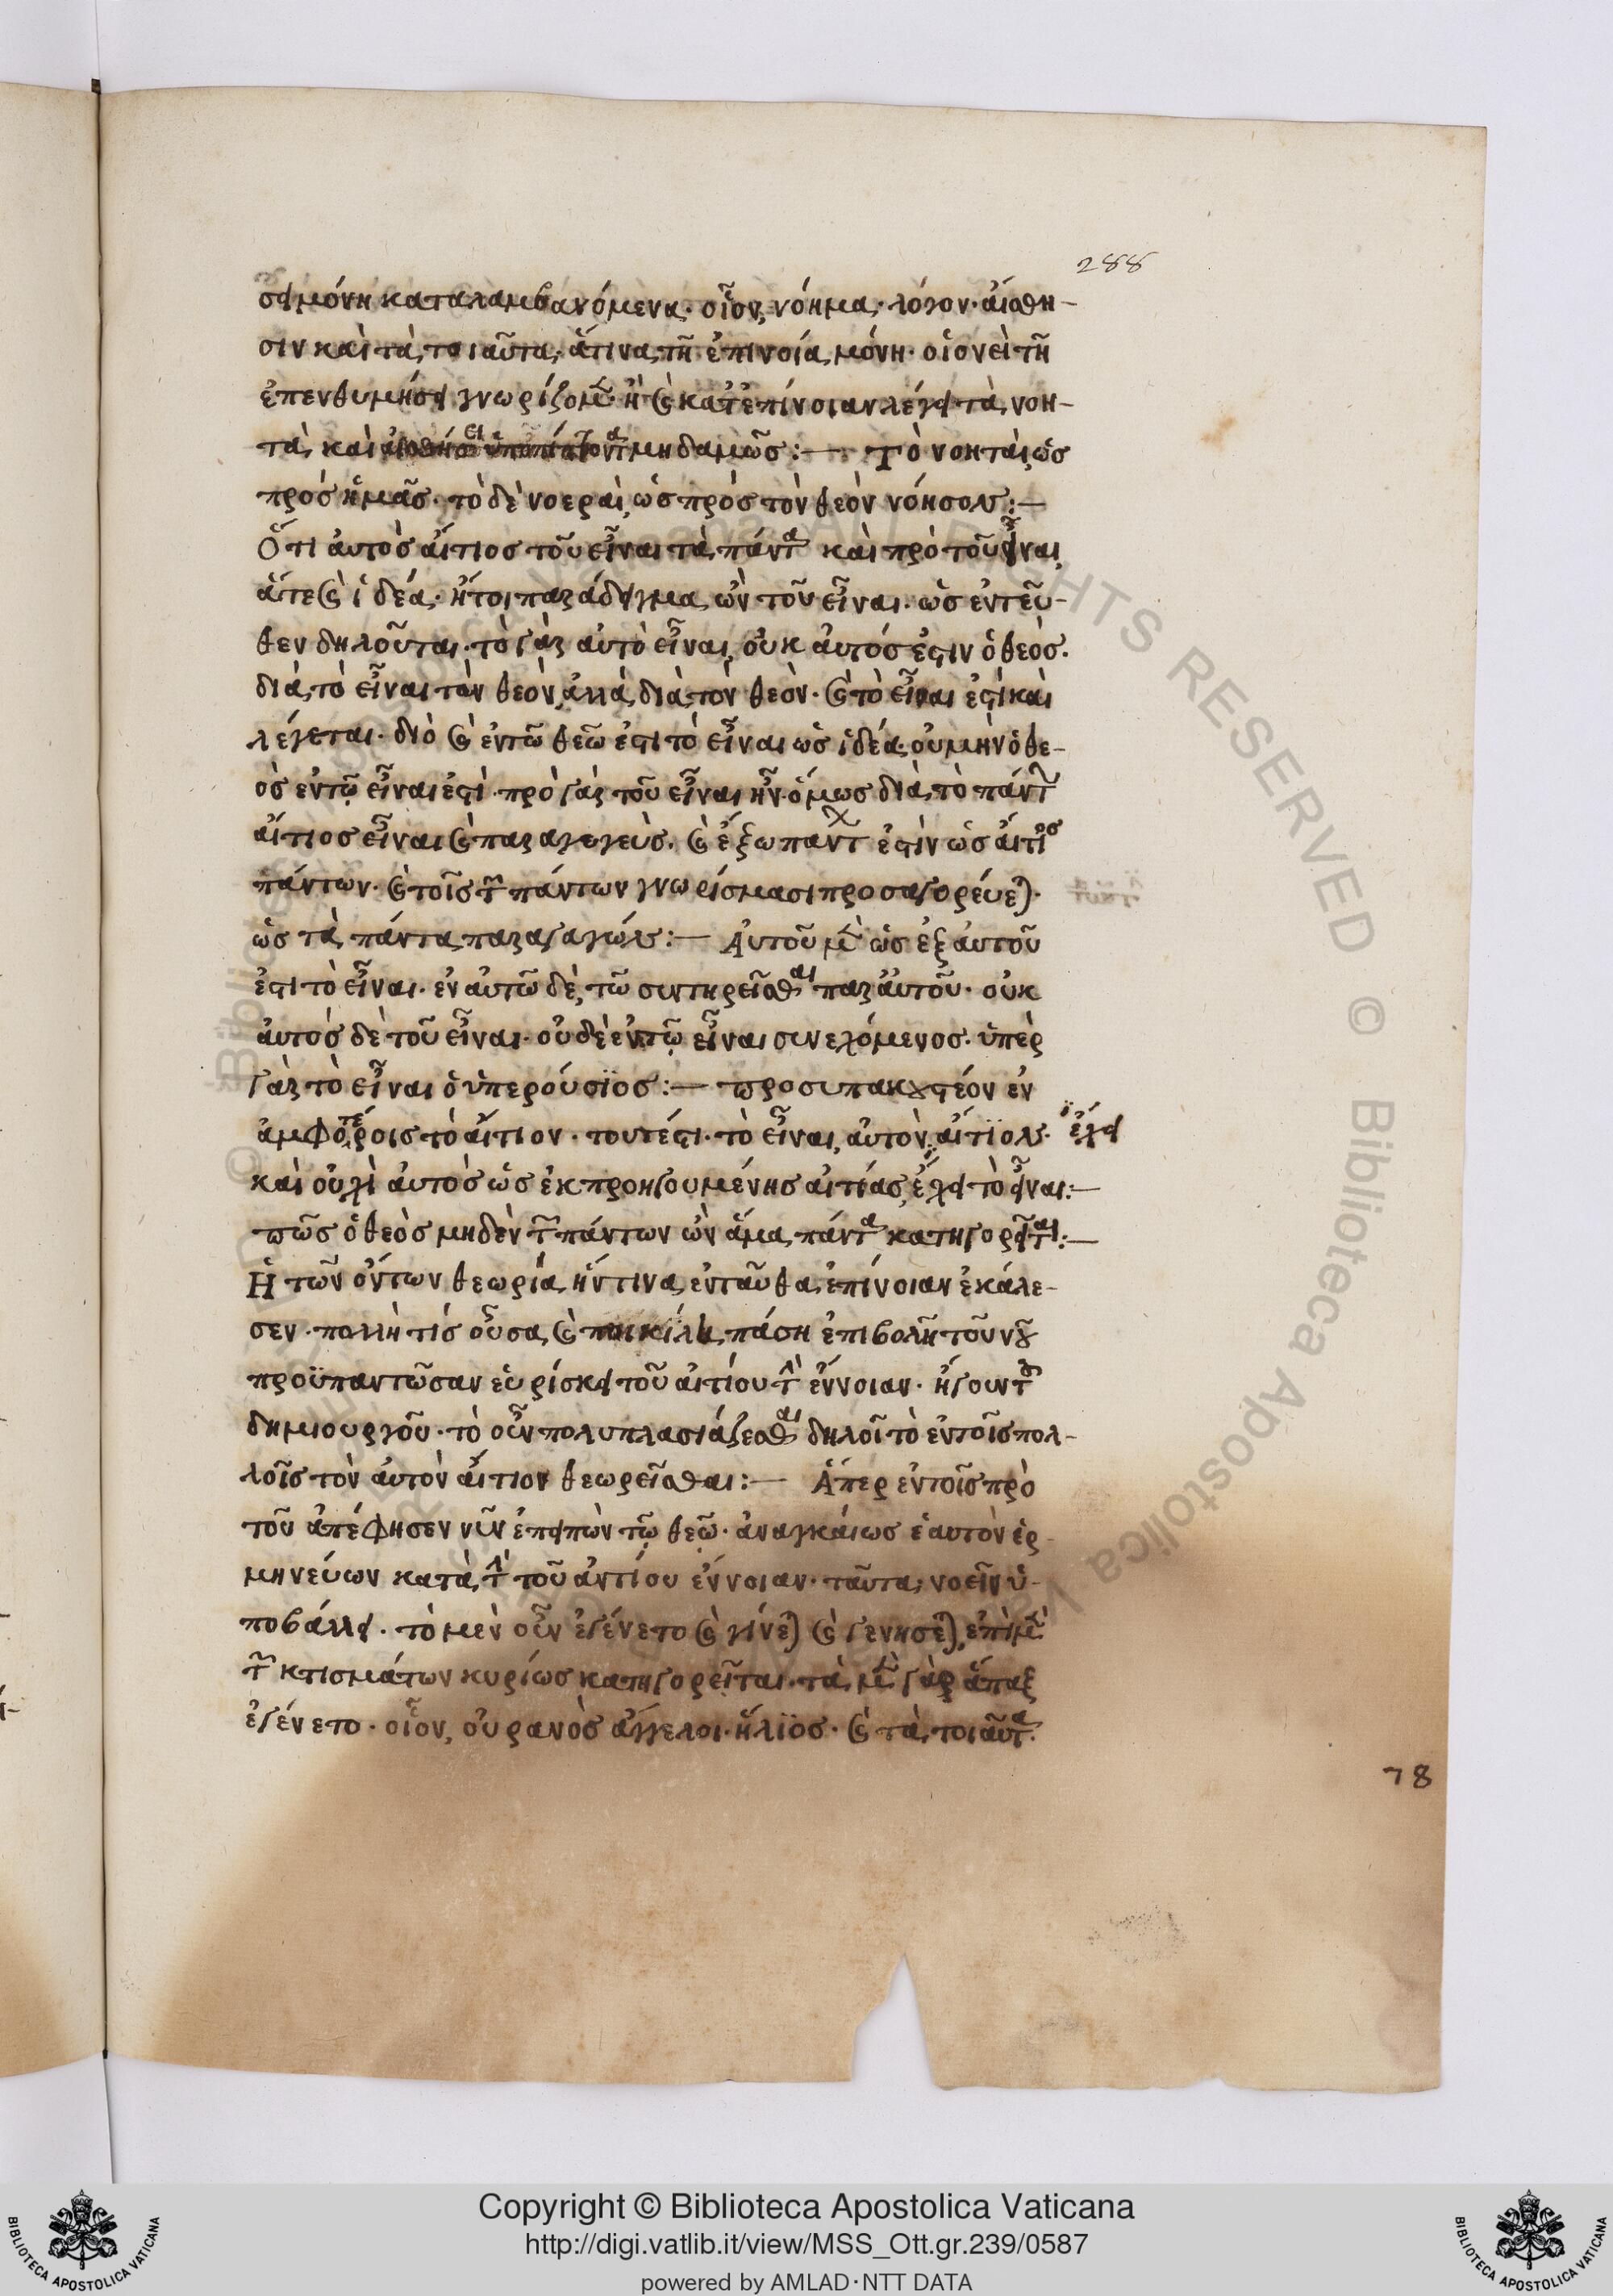 288
σει μόνη καταλαμβανόμενα· οἷον, νόημα· λόγον· αἴσθη-
σιν καὶ τὰ τοιαῦτα, ἅτινα τῆ ἐπινοία μόνη· οἱονεὶ τῆ
ἐπενθυμήσει γνωρίζομ· ἢ καὶ κατ ἐπίνοιαν λέγει τὰ νοη-
τὰ, καὶ αἰσθήσει ὑποπίπτοντα μηδαμῶς:— Τὸ νοηταὶ, ὡς
πρὸς ἡμᾶς· τὸ δὲ νοεραὶ, ὡς πρὸς τὸν θεὸν νόησον:—
Ὅτι αὐτὸς αἴτιος τοῦ εἶναι τὰ πάντα καὶ πρὸ τοῦ εἶναι,
ἅτε καὶ ἰδέα· ἤτοι παράδειγμα ὢν τοῦ εἶναι· ὡς ἐντεῦ-
θεν δηλοῦται· τὸ γὰρ αὐτὸ εἶναι, οὐκ αὐτός ἐστιν ὁ θεός·
διὰ τὸ εἶναι τὸν θεὸν, ἀλλὰ διὰ τὸν θεὸν· καὶ τὸ εἶναι ἐστὶ καὶ
λέγεται· διὸ καὶ ἐν τῶ θεῶ ἐστι τὸ εἶναι ὡς ἰδέα· οὐ μὴν ὁ θε-
ὸς ἐν τῷ εἶναι ἐστὶ· πρὸ γὰρ τοῦ εἶναι ἦν· ὅμως διὰ τὸ πάντων
αἴτιος εἶναι καὶ παραγωγεὺς· καὶ ἔξω παντ ἐστὶν ὡς αἴτιος
πάντων· καὶ τοῖς τῶν πάντων γνωρίσμασι προσαγορεύεται·
ὡς τὰ πάντα παραγαγών:— Αὐτοῦ μὲν ὡς ἐξ αὐτοῦ
ἐστι τὸ εἶναι· ἐν αὐτῶ δὲ, τῶ συντηρεῖσθαι παρ αὐτοῦ· οὐκ
αὐτὸς δὲ τοῦ εἶναι· οὐδὲ ἐν τῷ εἶναι συνεχόμενος· ὑπὲρ
γὰρ τὸ εἶναι ὁ ὑπερούσϊος:— προσυπακουστέον ἐν
ἀμφοτέροις τὸ αἴτιον· τουτέστι· τὸ εἶναι, αὐτὸν αἴτϊον· ἔχει
καὶ οὐχὶ αὐτὸς ὡς ἐκ προηγουμένης αἰτίας, ἔχει τὸ εἶναι:—
πῶς ὁ θεὸς μηδὲν τῶν πάντων ὢν ἅμα πάντα κατηγορεῖται:—
Ἡ τῶν ὄντων θεωρία, ἥντινα ἐνταῦθα ἐπίνοιαν ἐκάλε-
σεν· πολλὴ τίς οὖσα, καὶ ποικίλη, πάση ἐπιβολῆ τοῦ νοῦ
προϋπαντῶσαν εὑρίσκει τοῦ αἰτίου τὴν ἔννοιαν· ἤγουν τοῦ
δημιουργοῦ· τὸ οὖν πολυπλασιάζεσθαι δηλοῖ τὸ ἐν τοῖς πολ-
λοῖς τὸν αὐτὸν αἴτιον θεωρεῖσθαι:— Ἅπερ ἐν τοῖς πρὸ
τοῦ ἀπέφησεν νῦν ἐπειπὼν τῷ θεῷ· ἀναγκαίως ἑαυτὸν ἑρ-
μηνεύων κατὰ τὴν τοῦ ἀντίου ἔννοιαν· ταῦτα, νοεῖν ὑ-
ποβάλλει· τὸ μὲν οὖν ἐγένετο καὶ γίνεται καὶ γενήσεται, ἐπὶ μὲν
τῶν κτισμάτων κυρίως κατηγορεῖται· τὰ μὲν γὰρ ἅπαξ
ἐγένετο· οἷον, οὐρανὸς ἄγγελοι· ἥλϊος· καὶ τὰ τοιαῦτα·
78
© Biblioteca Apostolica Vaticana ALL RIGHTS RESERVED © Biblioteca Apostolica
Copyright © Biblioteca Apostolica Vaticana
http://digi.vatlib.it/view/MSS_Ott.gr.239/0587
powered by AMLAD·NTT DATA
BIBLIOTECA APOSTOLICA VATICANA
BIBLIOTECA APOSTOLICA VATICANA